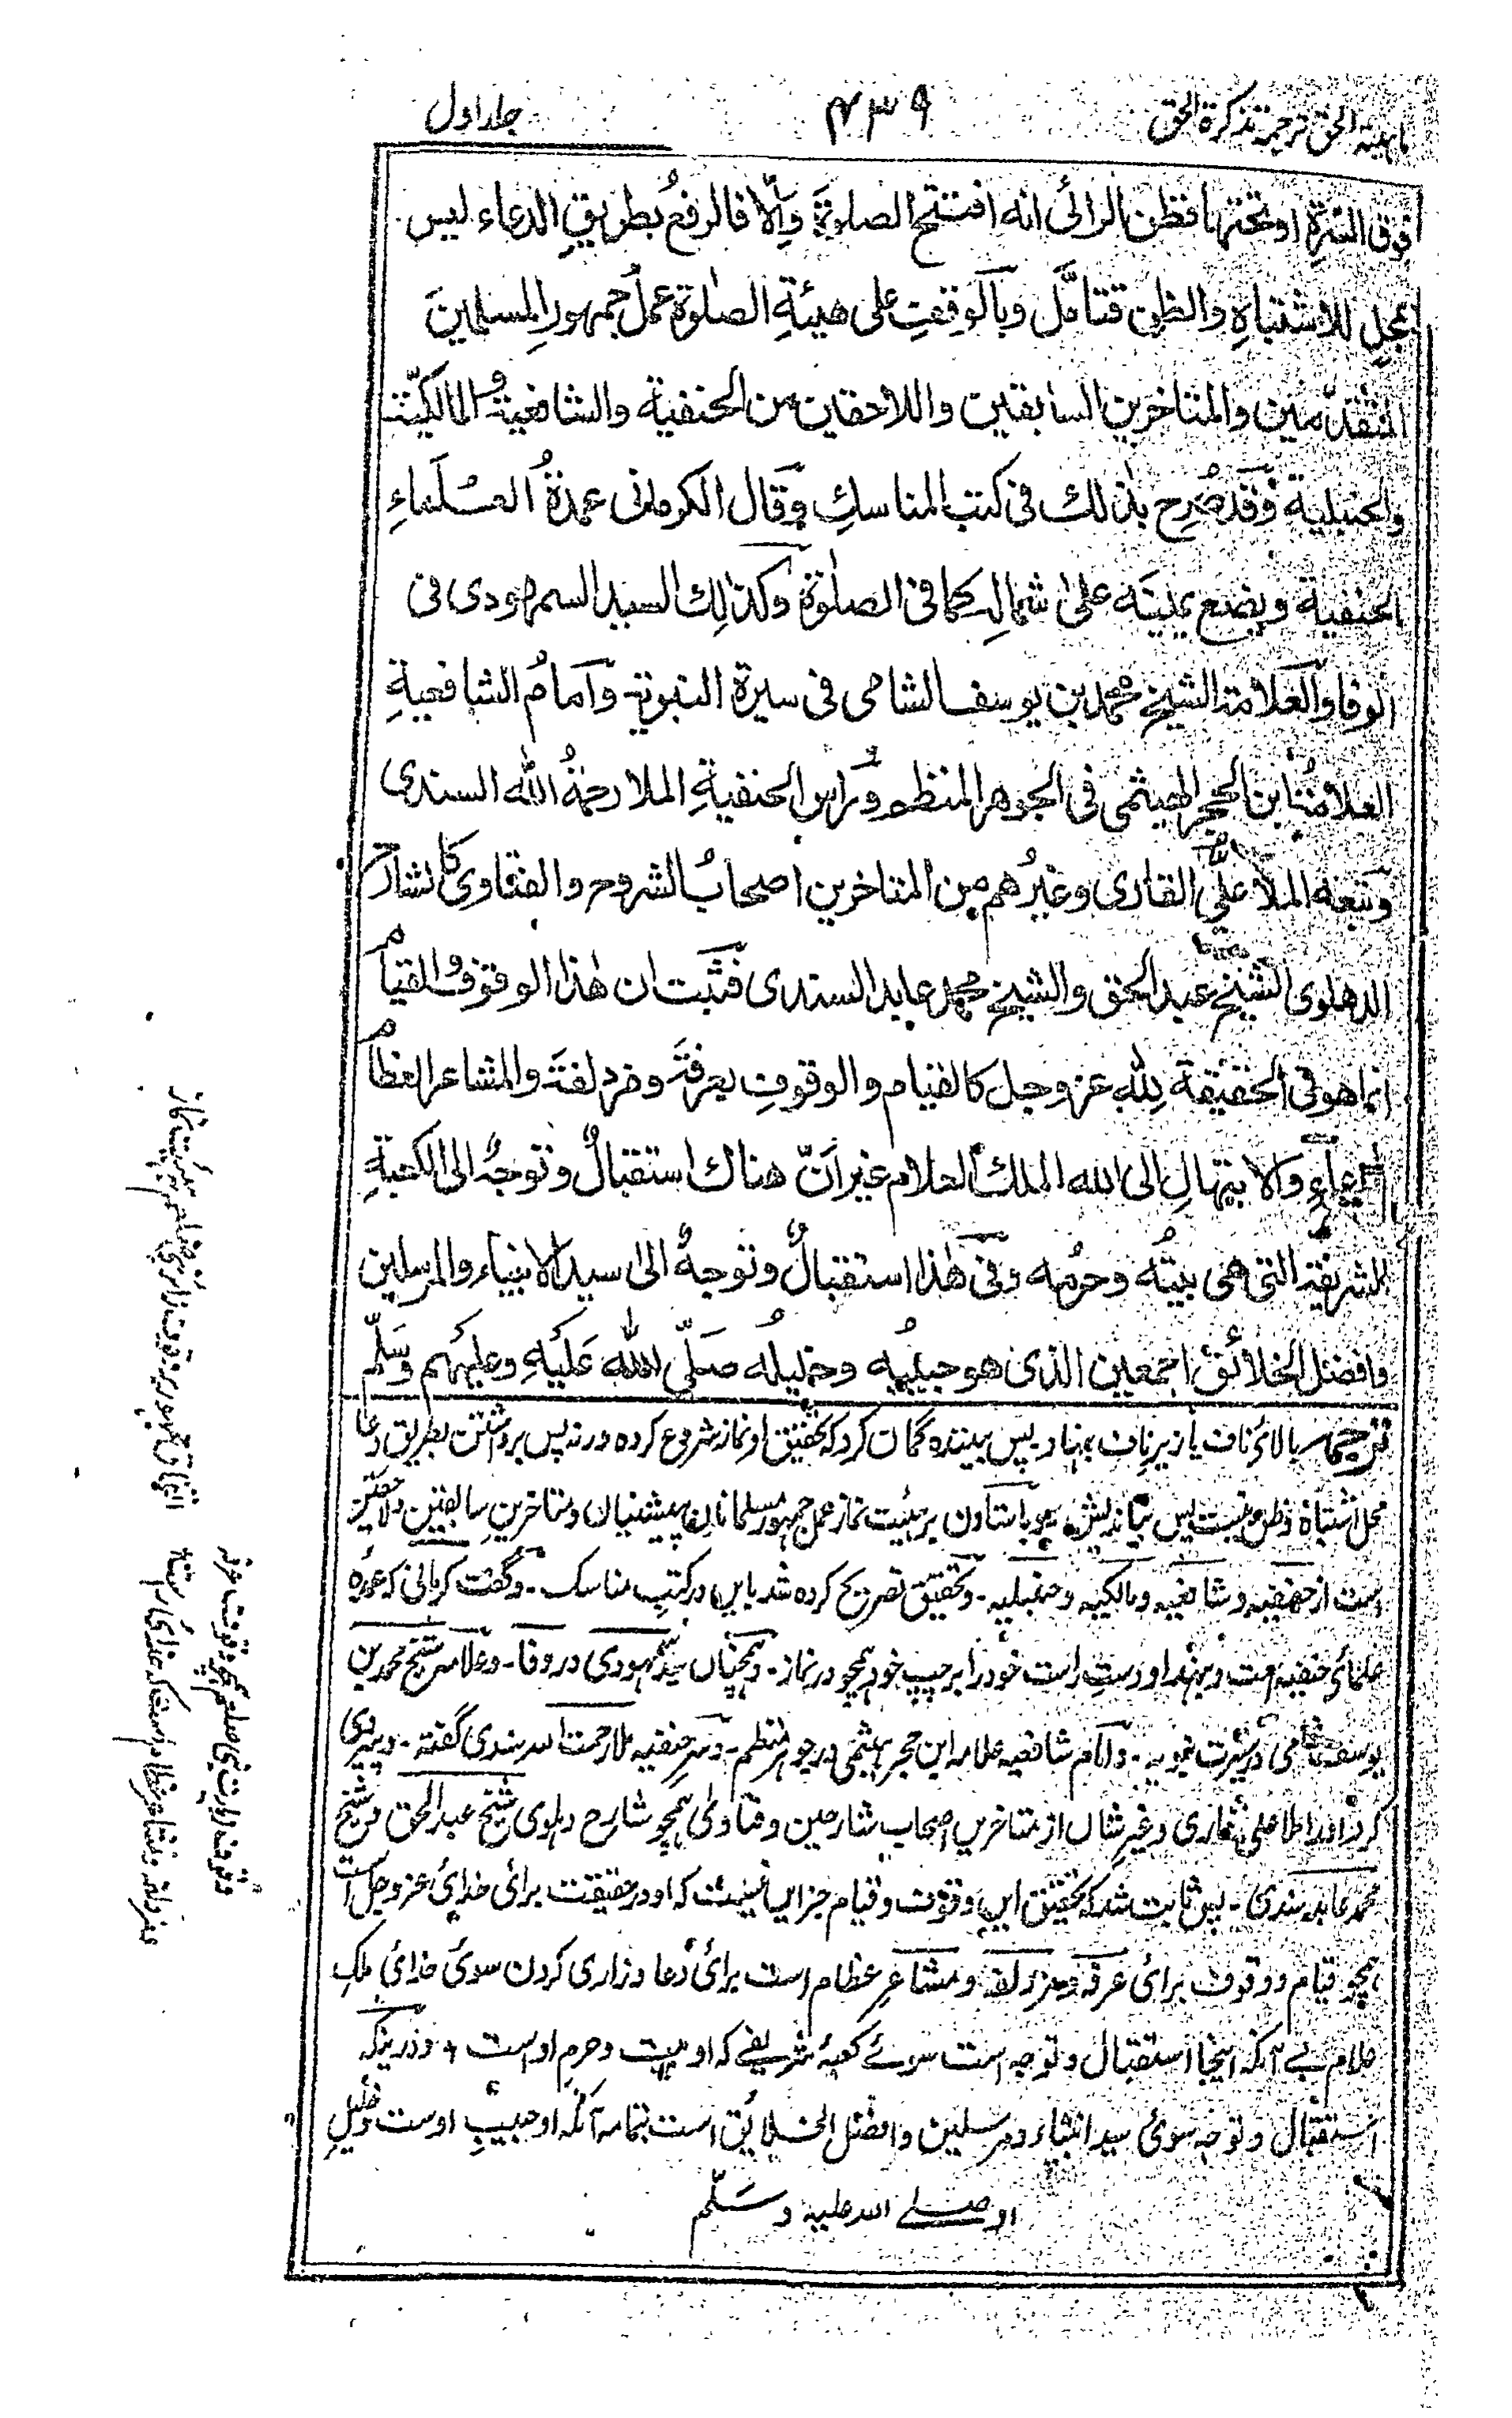 ترجمة تذكرة الحق
۴۳۹
جلد اول
فوق السرة او تحتها فظن الرائى انه افتتح الصلوة وَاِلّا فالرفعُ بطريقِ الدعاء ليس
بمحلٍ للاشتباهِ والظن فتامَّل وبالوقفتِ على هيئةِ الصلوة عملُ جمهورِ المسلمينَ
المتقدّمين والمتاخرين السابقين واللاحقين من الحنفية والشافعيةُ والمالكيّة
والحنبلية وقَد صُرِح بذلك فى كتب المناسكِ وقَال الكرمانى عمدةُ العُسلَماءِ
الحنفية ويضع يمينَه على شمالِه كما فى الصلوة وكذلك السيد السمهودى فى
الوفا والعلامة الشيخ محمد بن يوسف الشامى فى سيرة النبوية وَامامُ الشافعيةِ
العلامةُ ابن الحجر الهيثمى فى الجوهر المنظم ورُاس الحنفيةِ الملا رحمةُ الله السندى
وتبعه الملا علىّ القارى وغيرُهم من المتاخرين اصحابُ الشروح والفتاوى كالشارح
الدهلوى الشيخ عبد الحق والشيخ محمد عابد السندى فثَبت ان هذا الوقوفُ والقيام
انما هو فى الحقيقة لِلّهِ عز وجل كالقيام والوقوفِ بعرفةَ ومزدلفةَ والمشاعر العظام
للدعاءِ وَالابتهالِ الى الله الملك العلام غير اَنّ هناك استقبالٌ وتوجهٌ الى الكعبةِ
الشريفة التى هى بيتُه وحرمُه وفَى هذا استقبالٌ وتوجهٌ الى سيد الانبياء والمرسلين
وافضل الخلائق اجمعين الذى هو حبيبُه وخليلُه صَلَّى اللهُ عَلَيْهِ وعليهم وَسَلَّم
ترجمہ بالائ ناف یا زیر ناف بنهاد پس بیننده گمان کرد که تحقیق او نماز شروع کرده ورنه پس برداشتن بطریق دعا
محل اشتباه و ظن نیست پس بیندیش و باستادن بر هیئت نماز عمل جمهور مسلمانان پیشنیان و متاخرین سابقین ولاحقین
ست از حنفیه و شافعیه و مالکیه و حنبلیه - و تحقیق تصریح کرده شد باین در کتب مناسک - و گفت کرمانی که عمده
علمائ حنفیه ست و بنهد او دست راست خود را بر چپ خود همچو در نماز - و همچنان سید سمهودی در وفا - و علامه شیخ محمد بن
یوسف شامی در سیرت نبویه - و امام شافعیه علامه ابن حجر هیثمی در جوهر منظم - و سر حنفیه ملا رحمت الله سندی گفته - و پیروی
کرد او را ملا علی قاری و غیر شاں از متاخرین اصحاب شارحین و فتاوی همچو شارح دهلوی شیخ عبد الحق و شیخ
محمد عابد سندی - پس ثابت شد که تحقیق این وقوف و قیام جز این نیست که او در حقیقت برائ خدائ عز و جل است
همچو قیام و وقوف برائ عرفه و مزدلفه و مشاعر عظام است برائ دعا و زاری کردن سوئ خدائ ملک
علام بے آنکه اینجا استقبال و توجه است سوئے کعبۂ شریفے که او بیت و حرم اوست و درینکه
استقبال و توجه سوئ سید انبیاء و مرسلین و افضل الخلائق است بتمامه آنکه او حبیب اوست و خلیل
او صلے الله علیه وسَلّم